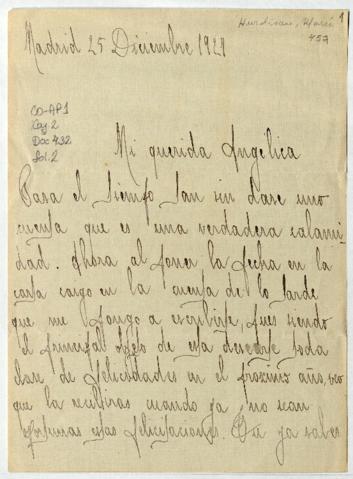 Hurdisan, María 1
457
Madrid 25 Diciembre 1921
CO-AP1
Caj. 2
Doc 432
Fol. 2
Mi querida Angélica
Pasa el tiempo tan sin darse uno
cuenta que es una verdadera calami-
dad. Ahora al poner la fecha en la
carta caigo en la cuenta de lo tarde
que me pongo a escribirte, pues siendo
el principal objeto de esta desearte toda
clase de felicidades en el próximo año, veo
que la recibiras cuando ya no sean
oportunas estas felicitaciones. Tú ya sabes